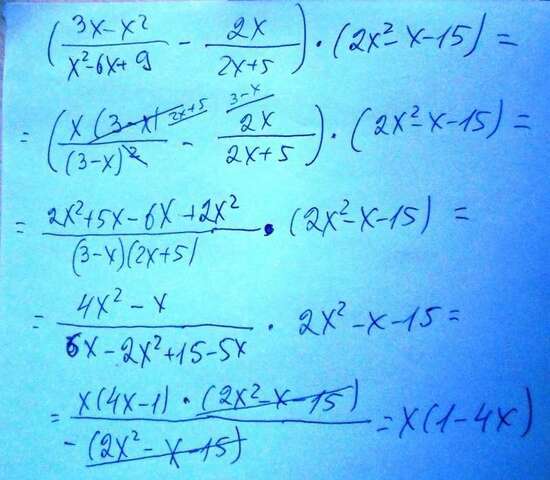 (3x-x²/x²-6x+9 - 2x/2x+5) · (2x²-x-15) =
= (x(3-x)/(3-x)² ^2x+5 - ^3-x 2x/2x+5) · (2x²-x-15) =
= 2x²+5x-6x+2x²/(3-x)(2x+5) · (2x²-x-15) =
= 4x²-x/6x-2x²+15-5x · 2x²-x-15 =
= x(4x-1) · (2x²-x-15)/-(2x²-x-15) = x(1-4x)